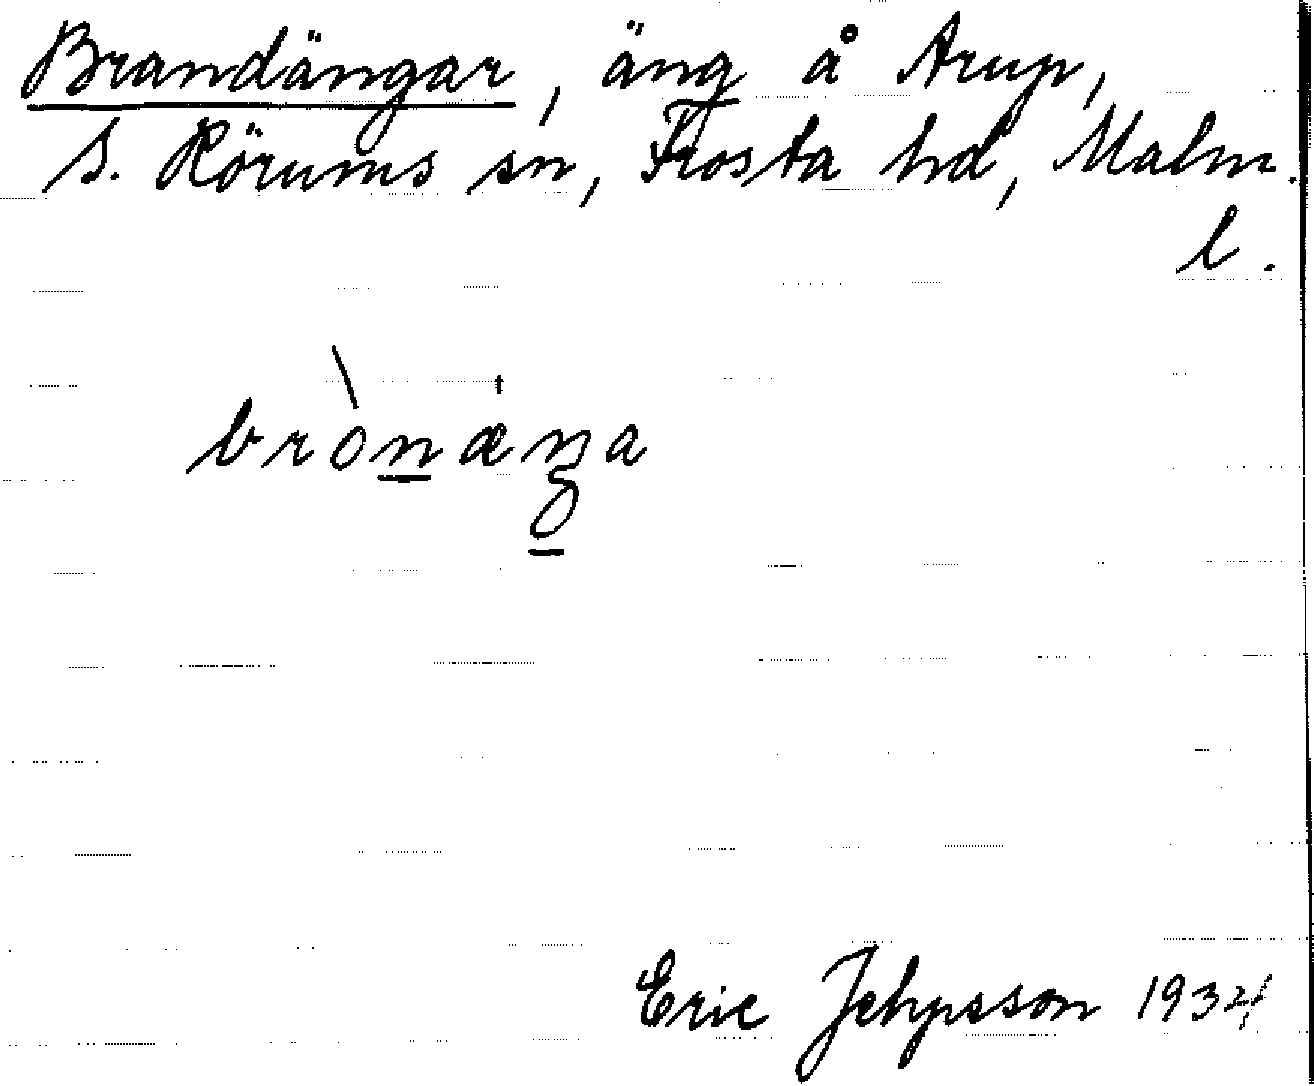 Brandängar, äng å Arup,
S. Rörums sn, Frosta hd, Malm.
l.
brònæŋa
Eric Jehpsson 1934